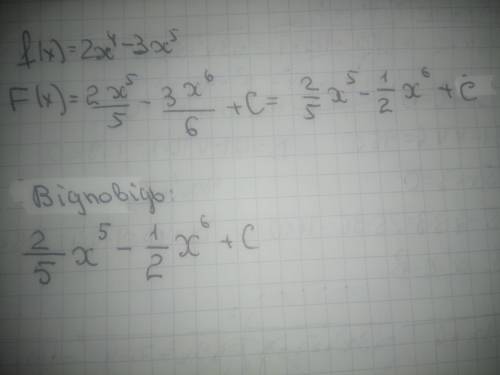 f(x)=2x⁴-3x⁵
F(x)=2x⁵/5 - 3x⁶/6 +C= 2/5 x⁵ - 1/2 x⁶ + C
Відповідь:
2/5 x⁵ - 1/2 x⁶ + C